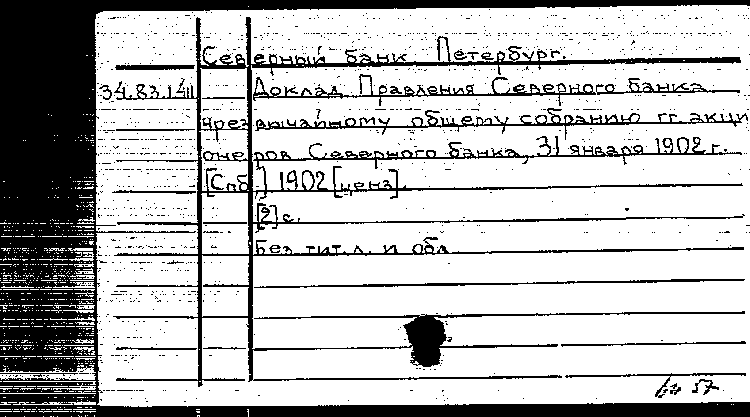 Северный банк. Петербург.
34.83.1.41 Доклад Правления Северного банка
чрезвычайному общему собранию гг. акци
онеров Северного банка, 31 января 1902 г.
[Спб.] 1902 [ценз].
[2] с.
Без тит. л. и обл.
57